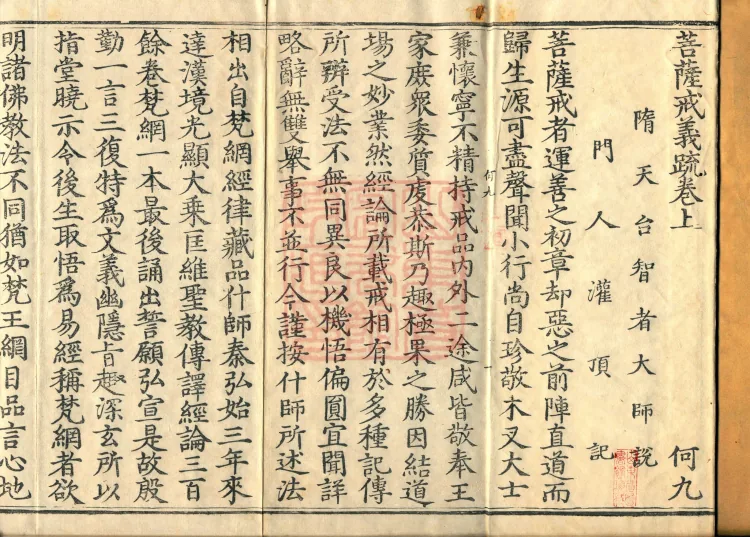 菩薩戒義疏卷上 何九
隋天台智者大師説
門人灌頂記
菩薩戒者運善之初章却惡之前陣直道而
歸生源可盡聲聞小行尚自珍敬木叉大士
何九
兼懷寧不精持戒品内外二途咸皆敬奉王
家庶衆委質虔恭斯乃趣極果之勝因結道
場之妙業然經論所載戒相有於多種記傳
所辨受法不無同異良以機悟偏圓宜聞詳
略辭無雙舉事不並行今謹按什師所述法
相出自梵網經律藏品什師秦弘始三年來
達漢境光顯大乘匡維聖教傳譯經論三百
餘卷梵網一本最後誦出誓願弘宣是故殷
勤一言三復特爲文義幽隱旨趣深玄所以
指掌曉示令後生取悟爲易經稱梵網者欲
明諸佛教法不同猶如梵王網目品言心地